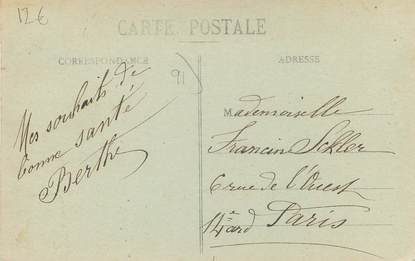 12€
CARTE POSTALE
CORRESPONDANCE
ADRESSE
91
Mes souhaits de
bonne santé
Berthe
Mademoiselle
Francin
6 rue de l'Ouest
14e ard Paris